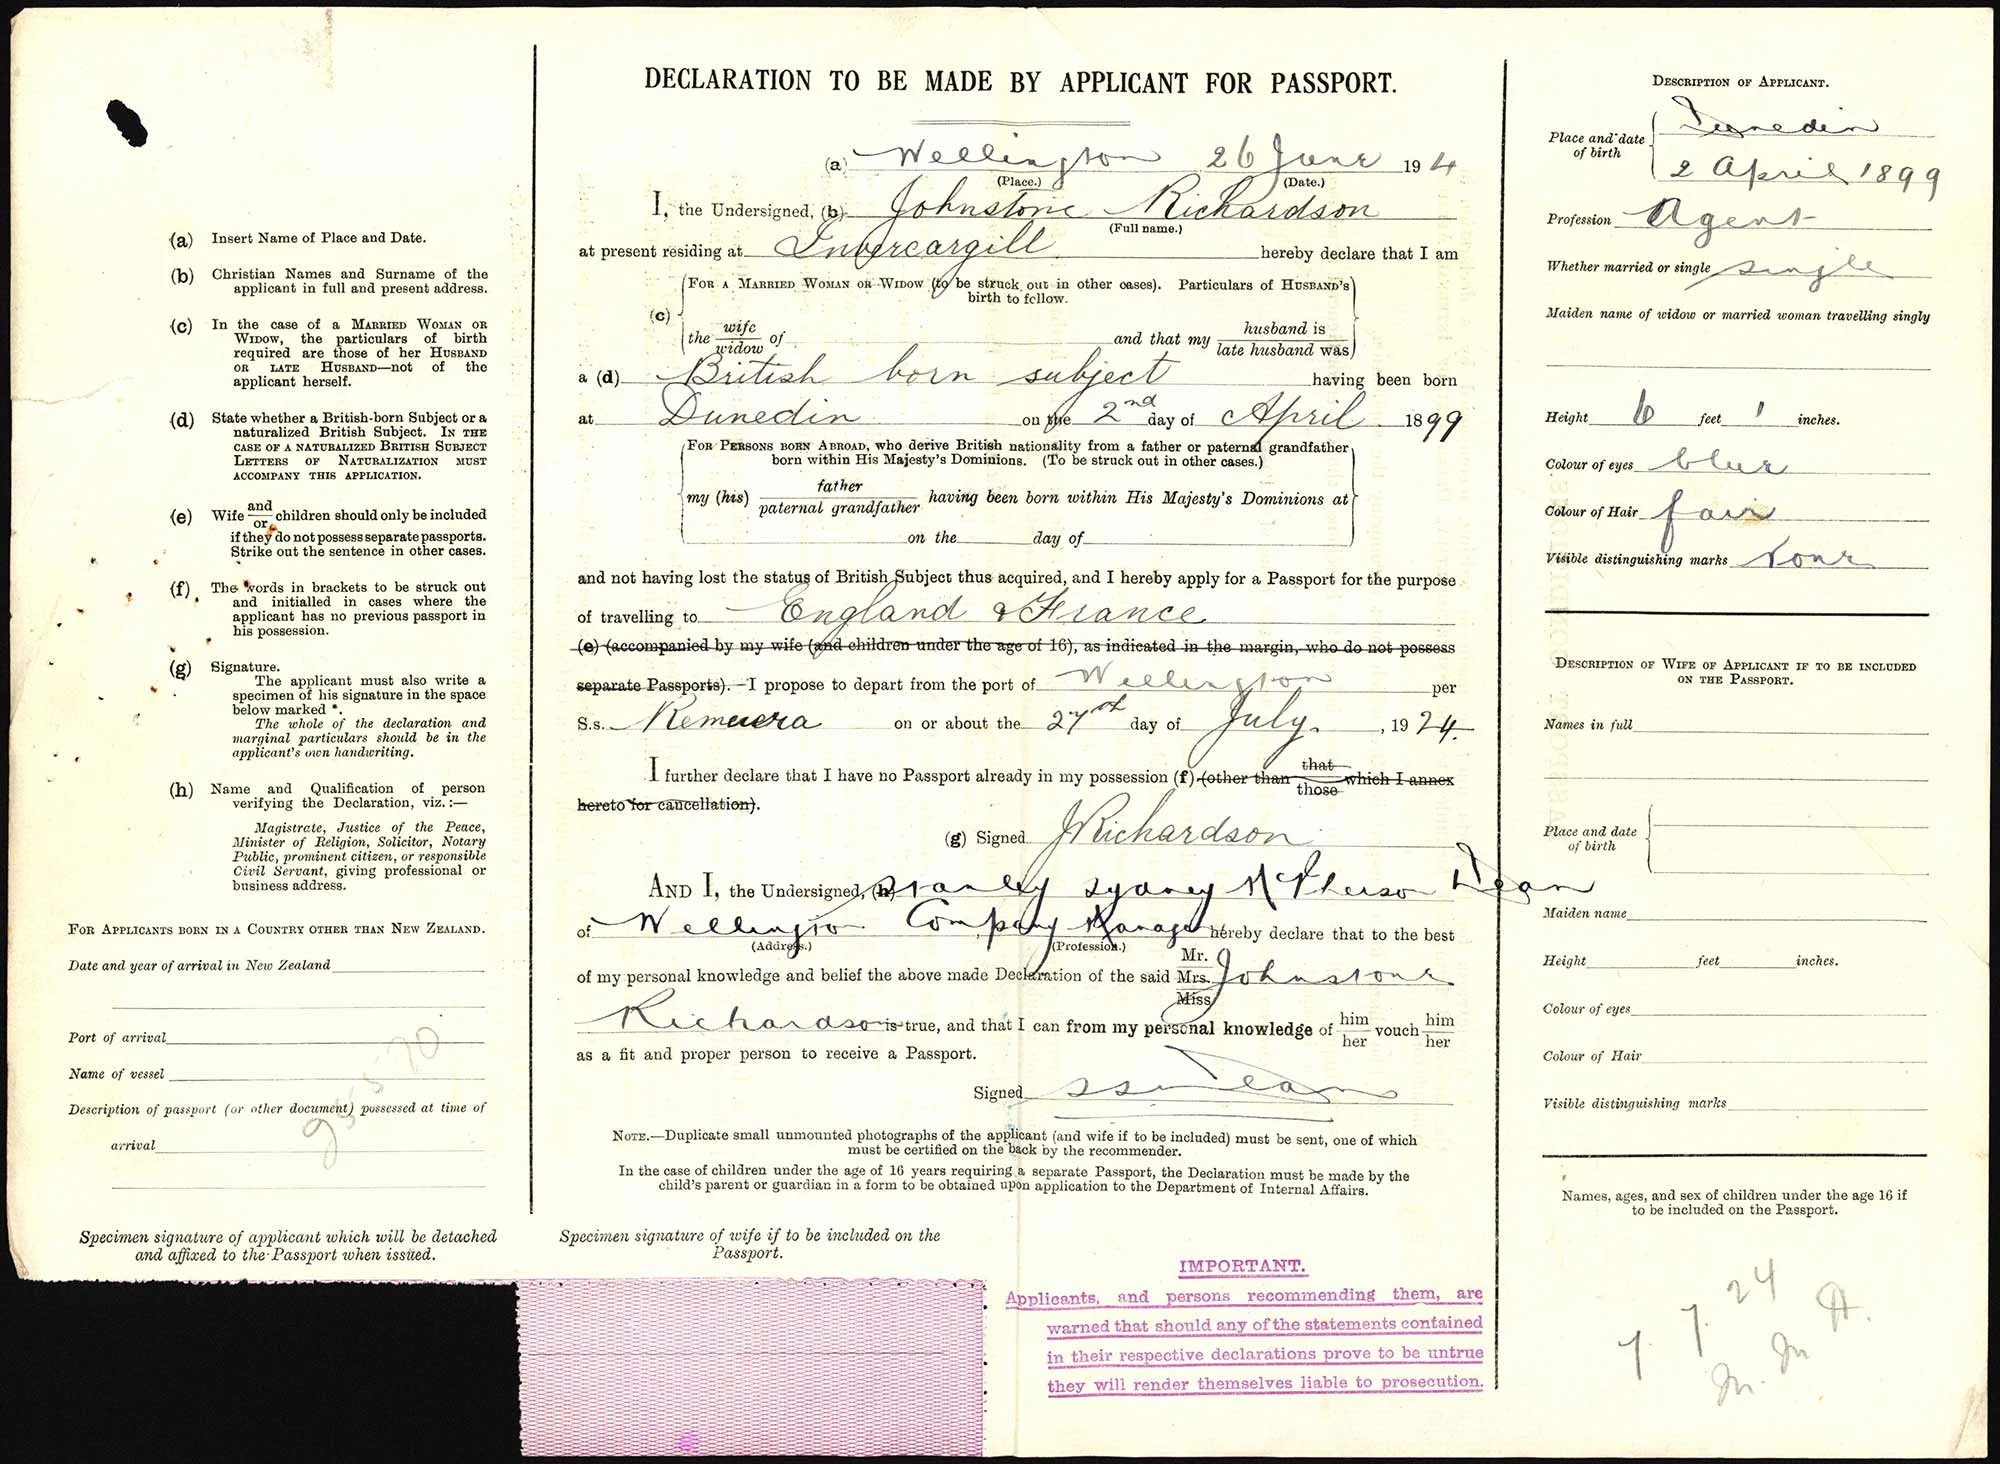 (a) Insert Name of Place and Date.
(b) Christian Names and Surname of the
applicant in full and present address.
(c) In the case of a Married Woman or
Widow, the particulars of birth
required are those of her Husband
or late Husband—not of the
applicant herself.
(d) State whether a British-born Subject or a
naturalized British Subject. In the
case of a naturalized British Subject
Letters of Naturalization must
accompany this application.
(e) Wife and/or children should only be included
if they do not possess separate passports.
Strike out the sentence in other cases.
(f) The words in brackets to be struck out
and initialled in cases where the
applicant has no previous passport in
his possession.
(g) Signature.
The applicant must also write a
specimen of his signature in the space
below marked *.
The whole of the declaration and
marginal particulars should be in the
applicant's own handwriting.
(h) Name and Qualification of person
verifying the Declaration, viz.:—
Magistrate, Justice of the Peace,
Minister of Religion, Solicitor, Notary
Public, prominent citizen, or responsible
Civil Servant, giving professional or
business address.
For Applicants born in a Country other than New Zealand.
Date and year of arrival in New Zealand
Port of arrival
Name of vessel
Description of passport (or other document) possessed at time of
arrival
Specimen signature of applicant which will be detached
and affixed to the Passport when issued.
DECLARATION TO BE MADE BY APPLICANT FOR PASSPORT.
(a) Wellington 26 June 194
(Place.) (Date.)
I, the Undersigned, (b) Johnstone Richardson
(Full name.)
at present residing at Invercargill hereby declare that I am
For a Married Woman or Widow (to be struck out in other cases). Particulars of Husband's
birth to follow.
(c) the wife/widow of and that my husband is/late husband was
a (d) British born subject having been born
at Dunedin on the 2nd day of April 1899
For Persons born Abroad, who derive British nationality from a father or paternal grandfather
born within His Majesty's Dominions. (To be struck out in other cases.)
my (his) father/paternal grandfather having been born within His Majesty's Dominions at
on the day of
and not having lost the status of British Subject thus acquired, and I hereby apply for a Passport for the purpose
of travelling to England & France
(e) (accompanied by my wife (and children under the age of 16), as indicated in the margin, who do not possess
separate Passports). I propose to depart from the port of Wellington per
S.s. Remuera on or about the 27th day of July. , 1924.
I further declare that I have no Passport already in my possession (f) (other than that/those which I annex
hereto for cancellation).
(g) Signed JRichardson
And I, the Undersigned, (h) Stanley Sydney McPherson Dean
of Wellington Company Manager hereby declare that to the best
(Address.) (Profession.)
of my personal knowledge and belief the above made Declaration of the said Mr./Mrs./Miss Johnstone
Richardson is true, and that I can from my personal knowledge of him/her vouch him/her
as a fit and proper person to receive a Passport.
Signed SSM Dean
Note.—Duplicate small unmounted photographs of the applicant (and wife if to be included) must be sent, one of which
must be certified on the back by the recommender.
In the case of children under the age of 16 years requiring a separate Passport, the Declaration must be made by the
child's parent or guardian in a form to be obtained upon application to the Department of Internal Affairs.
Specimen signature of wife if to be included on the
Passport.
IMPORTANT.
Applicants, and persons recommending them, are
warned that should any of the statements contained
in their respective declarations prove to be untrue
they will render themselves liable to prosecution.
Description of Applicant.
Place and date of birth Dunedin
2 April 1899
Profession Agent
Whether married or single single
Maiden name of widow or married woman travelling singly
Height 6 feet 1 inches.
Colour of eyes blue
Colour of Hair fair
Visible distinguishing marks None
Description of Wife of Applicant if to be included
on the Passport.
Names in full
Place and date
of birth
Maiden name
Height feet inches.
Colour of eyes
Colour of Hair
Visible distinguishing marks
Names, ages, and sex of children under the age 16 if
to be included on the Passport.
7. 7. 24